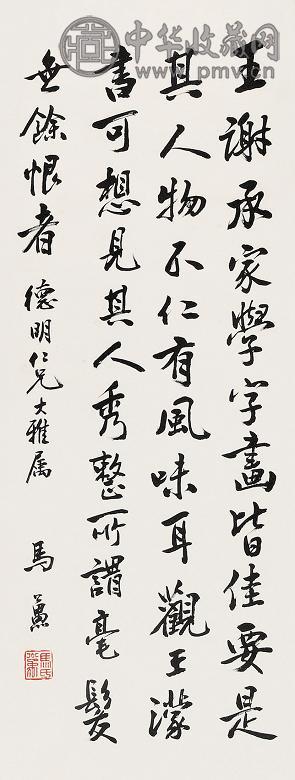 中华收藏网
www.pmv.cn
王謝承家學字畫皆佳要是
其人物不仁有風味耳觀王濛
書可想見其人秀整所謂毫髮
無餘恨者
德明仁兄大雅属
馬